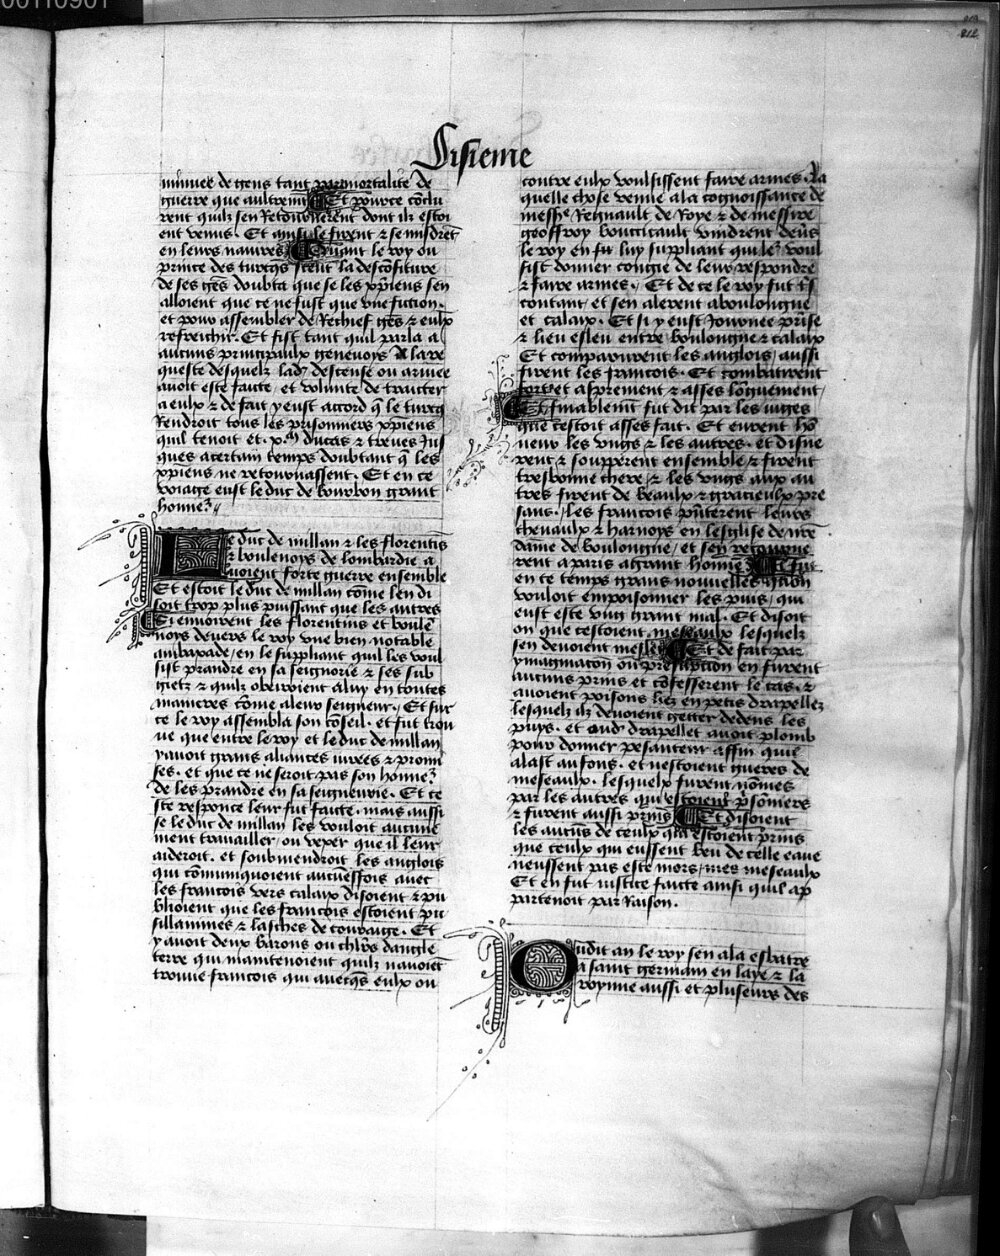 00110901
212
212
Sisieme
minues de gens tant par mortalite de
guerre que aultremt Et pource cōclu
rent quilz sen Retournerent dont ilz estoi
ent venus. Et ainsi le firent & se misdrēt
en leurs nauires Quant le roy ou
prince des turcqs sceut la descōfiture
de ses gēs doubta que se les xp̄iens sen
alloient que ce ne fust que vne fiction.
et pour assembler de Rechief gēs & eulx
refreichir. Et fist tant quil parla a
aucuns principaulx geneuoys A la re
queste desquelz lad descense ou armee
auoit este faicte, et volunte de traicter
a eulx & de fait y eust accord q̄ le turcq
Rendroit tous les prisonniers xp̄iens
quil tenoit et .x.m ducas & treues Jus
ques a certain temps doubtant q̄ les
xp̄iens ne retournassent. Et en ce
voiage eust le duc de bourbon grant
honneʳ
Le duc de millan & les florentīs
& boulenoys de lombardie a
uoient forte guerre ensemble
Et estoit le duc de millan cōme len di
soit trop plus puissant que les autres
Si enuoierent les florentins et boulē
noys deuers le roy vne bien notable
ambaxade, en le suppliant quil les voul
sist prandre en sa seignorie & ses sub
gietz & quilz obeiroient a luy en toutes
manieres cōme a leur seigneur. Et sur
ce le roy assembla son cōseil. et fut trou
ue que entre le roy et le duc de millan
y auoit grans aliances iurees & promi
ses. et que ce ne seroit pas son honneʳ
de les prandre en sa seigneurie. Et ce
ste responce leur fut faicte. mais aussi
se le duc de millan les vouloit aucune
ment trauailler, ou vexer que il leur
aideroit. et soubuiendroit les anglois
qui cōmuniquoient aucueffois auec
les francois vers calaix disoient & pu
blioient que les francois estoient pu
sillanimes & lasches de couraige. Et
y auoit deux barons ou chl̄rs dangle
terre qui maintenoient quilz nauoiēt
trouue francois qui auecq̄s eulx ou
contre eulx voulsissent faire armes. La
quelle chose venue a la cognoissance de
messʳᵉ Regnault de Roye & de messire
geoffroy boucicault vindrent deūs
le roy en lui suppliant qui lez voul
sist donner congie de leur respondre
& faire armes. Et de ce le roy fut tr̄s
contant et sen alerent a boulongne
et calaix. Et si y eust Journee prīse
& lieu esleu entre boulongne & calaix
Et comparurent les anglois, aussi
firent les francois. Et combatirent
fort et asprement & asses lōguement,
Et finablemēt fut dit par les iuges
que cestoit asses fait. Et eurent hō
neur les vngs & les autres. et disne
rent & soupperent ensemble & firent
tres bonne chere, & les vngs aux au
tres firent de beaulx & gracieulx pre
sans. les francois pn̄terent leurs
cheuaulx & harnoys en lesglise de nr̄e
dame de boulongne, et sen retourne
rent a paris a grant honneʳ Il fut
en ce temps grans nouuelles quon
vouloit empoisonner les puis, qui
eust este vng grant mal. Et disoit
on que cestoient meseaulx lesquelz
sen deuoient mesler Et de fait par
ymaginaton ou presumption en furent
aucuns prins et cōfesserent le cas. &
auoient poisons liez en petis drapellez
lesquelz ilz deuoient getter dedens les
puys. et oud drapellet auoit plomb
pour donner pesanteur affin quil
alast au fons. et nestoient gueres de
meseaulx. lesquelx furent nōmes
par les autres qui estoient pn̄sōniers
& furent aussi prins Et disoient
les aucūs de ceulx qui estoient prins
que ceulx qui eussent beu de celle eaue
neussent pas este mors, mes meseaulx
Et en fut iustice faicte ainsi quil ap
partenoit par Raison.
Oudit an le roy sen ala esbatre
a saint germain en laye & la
royne aussi et pluseurs des